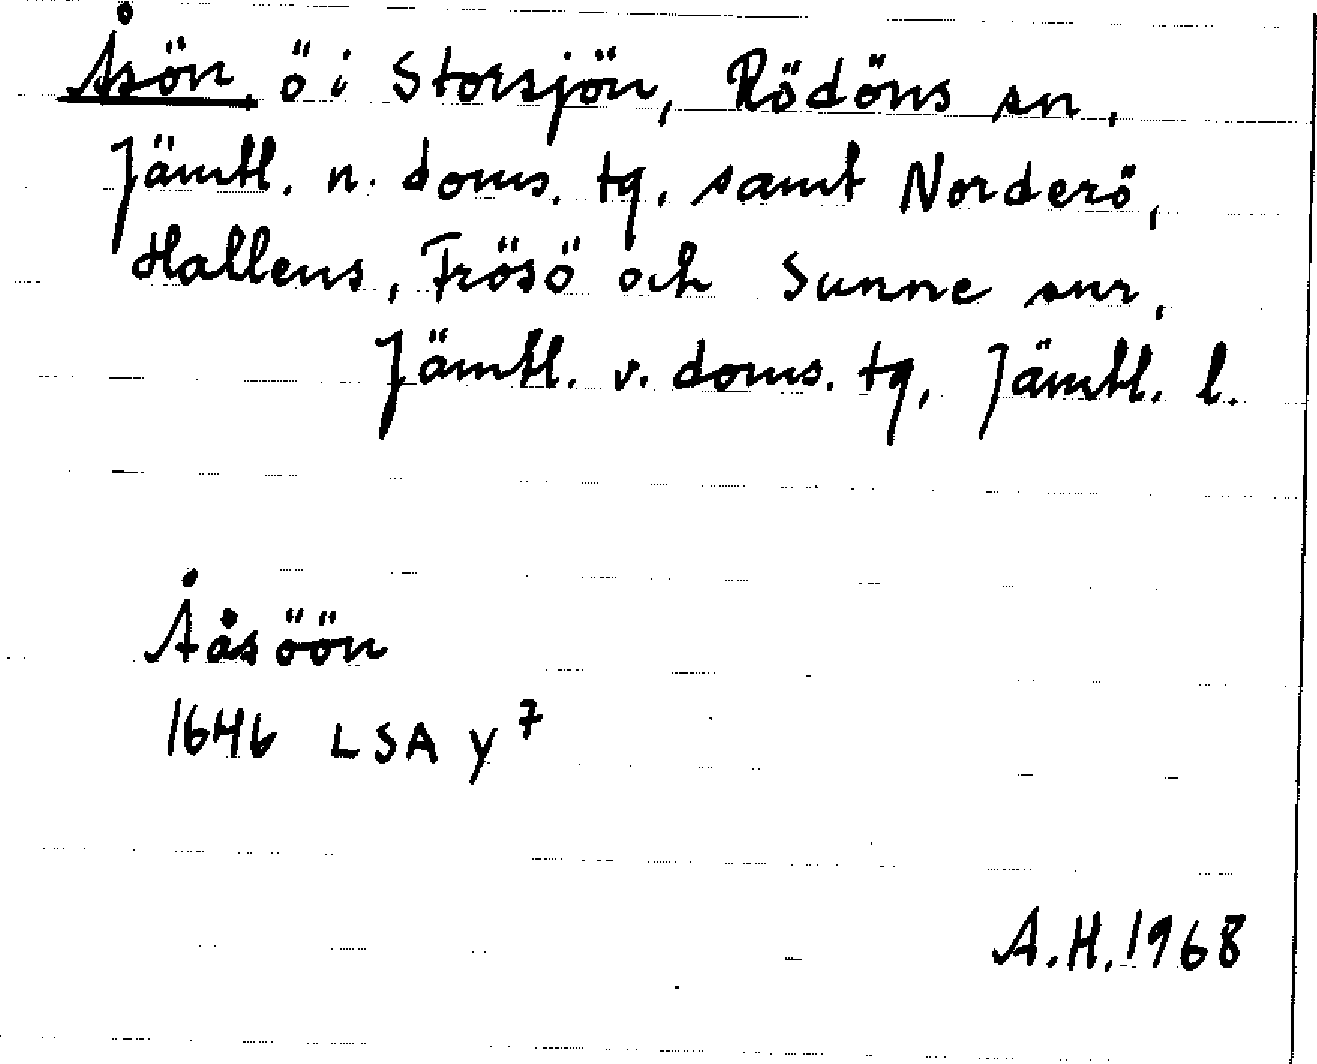 Åsön, ö i Storsjön, Rödöns sn,
Jämtl. n. doms. tg, samt Norderö,
Hallens, Frösö och Sunne snr,
Jämtl. v. doms. tg, Jämtl. l.
Ååsöön
1646 LSA y⁷
A.H. 1968